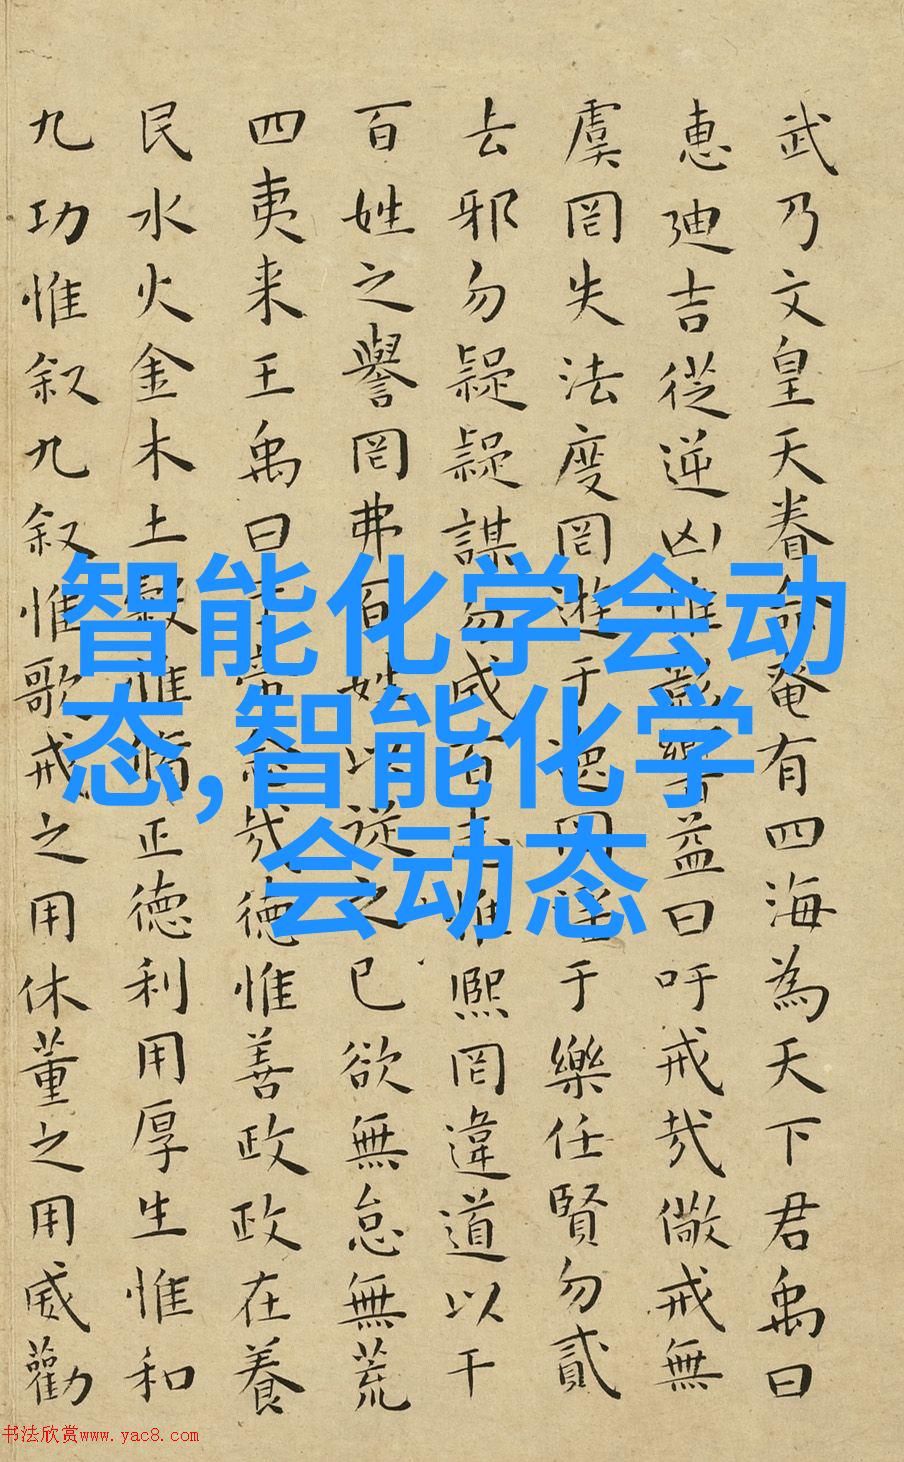 武乃文皇天眷命奄有四海為天下君禹曰
惠迪吉從逆凶惟影響益曰吁戒哉儆戒無
虞罔失法度罔遊于逸罔淫于樂任賢勿貳
去邪勿疑疑謀勿成百志惟熙罔違道以干
百姓之譽罔弗百姓以從之已欲無怠無荒
四夷来王禹曰於帝念哉德惟善政政在養
民水火金木土穀惟脩正德利用厚生惟和
九功惟叙九叙惟歌戒之用休董之用威勸
智能化学会动
态,智能化学
会动态
书法欣赏www.yac8.com